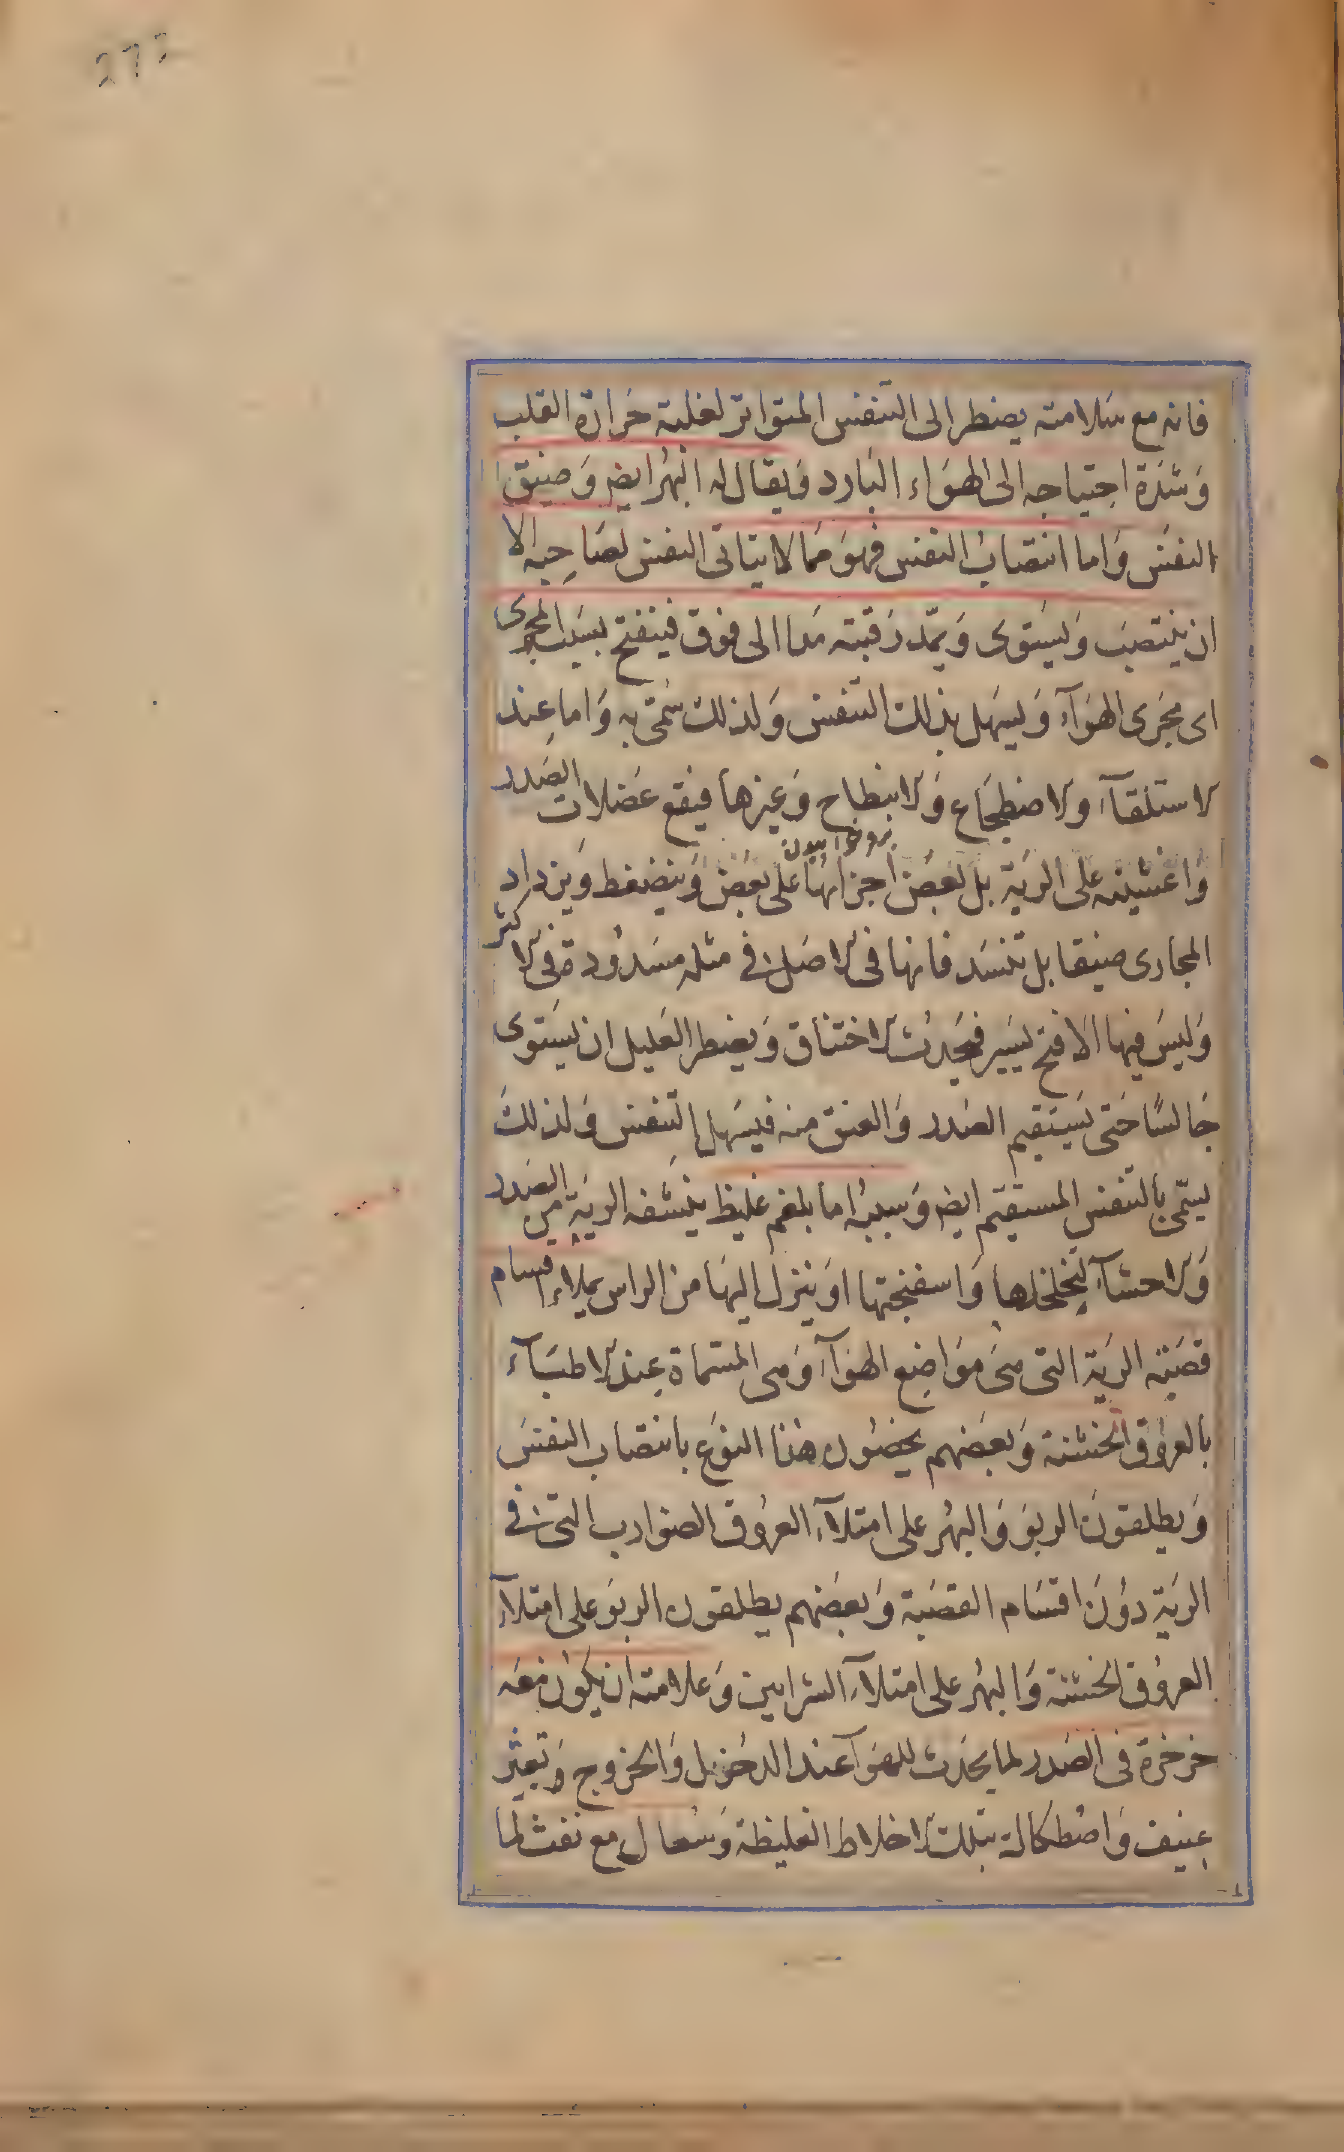 272
فانه مع سلامته يضطر الى التنفس المتواتر لغلبة حَرارة القلب
وَشدَة احتياجه الى الهوَاء البَارد وَيقال له البُهر ايضر وَضيق
النفسَ وَاما انتصابُ النفس فهوَ مما لا يتاتى النفس لصَاحِبه الا
ان ينتصِبَ وَيستوى وَيمّد رَقبته مَدا الى فوق فينفتح بسَببه المجرى
اى مجَرى الهوَآء وَليسهل بذلك التنفس وَلذلك سَمّى به وَاما عِند
الاستلقآء والاضطجَاع وَالانبطاح وَغيرها فيقع عَضلات الصَدر
وَاغشيته على الرَية بل بعَضُ اجزائهَا على بعَض وَينضغط وَيزداد
المجارى ضيقا بل تنسَد فانها فى الاصَل فى مثله مسَدُودة فى الاكثر
وَليسَ فيها الا فتح يَسير فيَحدثُ الاختناق وَيضطر العَليل ان يَستوى
جَالسًا حَتى يَستقيم الصَدر وَالعنق منه فيسَهل التنفس وَلذلكَ
يسَمّى بالتنفس المستقيم ايضر وَسببُه اما بلغم غليظ ينشفه الريَة من الصَدر
وَالاحشآء لتِخلخلها وَاسفنجيتها اوَ ينزل اليهَا من الراس يملاء اقسام
قصَبة الرَية التى هىَ مَوَاضِع الهوَآء وَهى المسَماة عِند الاطبَآء
بالعروُق الخشنة وَبعَضهم يخصُون هذا النوَع بانتصاب النفسَ
وَيطلقونَ الربوَ وَالبهُر على امتلآء العرُوق الضوارب التى فى
الريَة دوُنَ اقسَام القصَبة وَبعَضهم يطلقون الربوَ على امتلآء
العروُق الخشنة وَالبهُر على امتلآء الشرايين وَعلامته ان يكوُن مَعَه
خرخرة فى الصَدر لما يحَدث للهوَآ عند الدخوُل وَالخروج وَتعثر
عنيف وَاصُطكاك بتلك الاخلاط الغليظة وَسُعال مع نفث لما